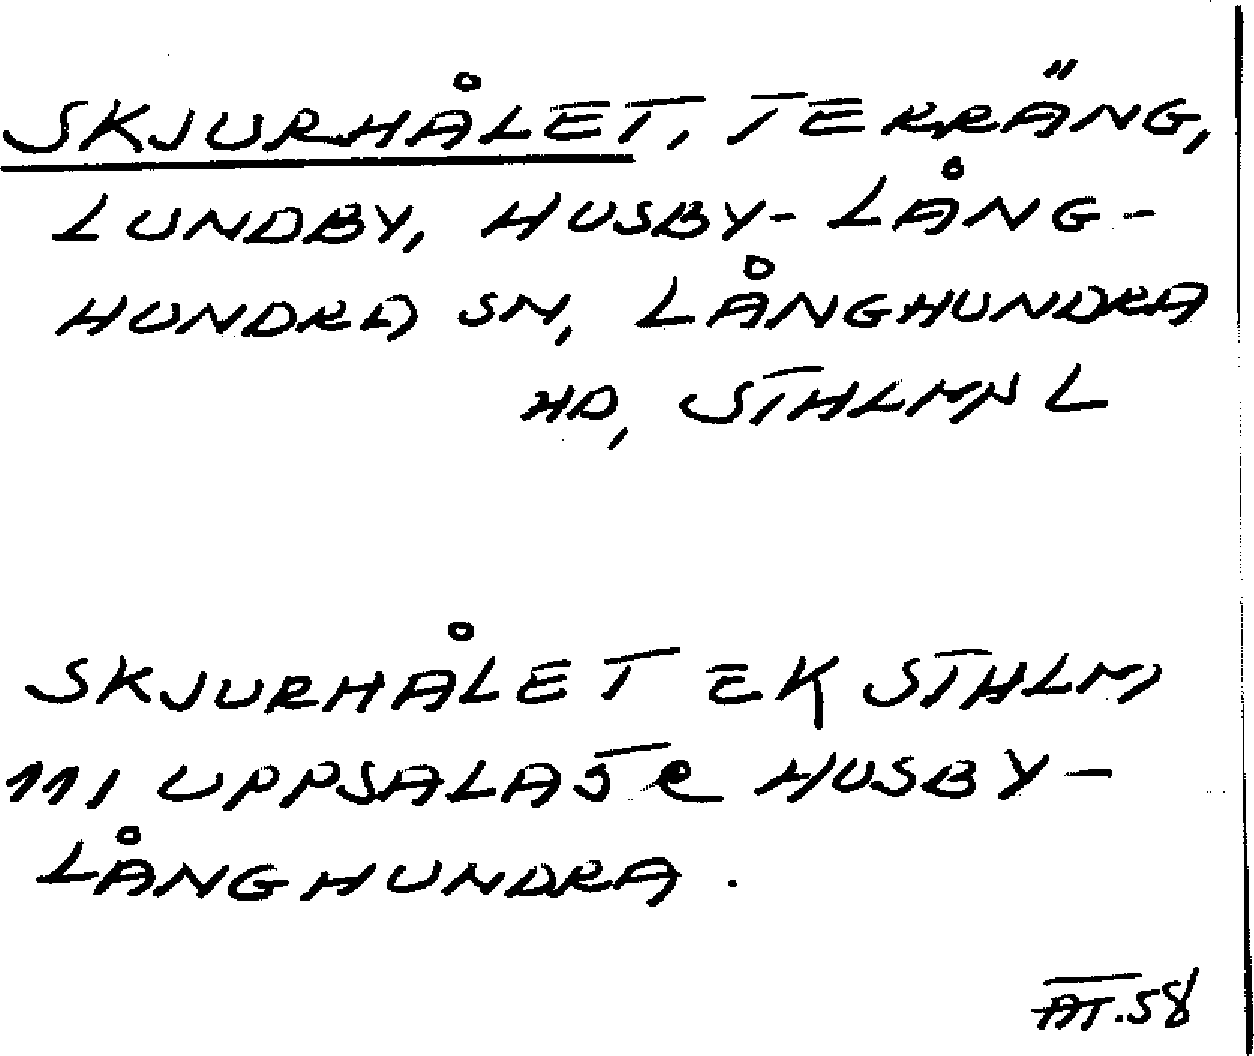 SKJURHÅLET, TERRÄNG,
LUNDBY, HUSBY-LÅNG-
HUNDRA SN, LÅNGHUNDRA
HD, STHLMN L
SKJURHÅLET EK STHLM
111 UPPSALA 5 R HUSBY-
LÅNGHUNDRA.
AT.58